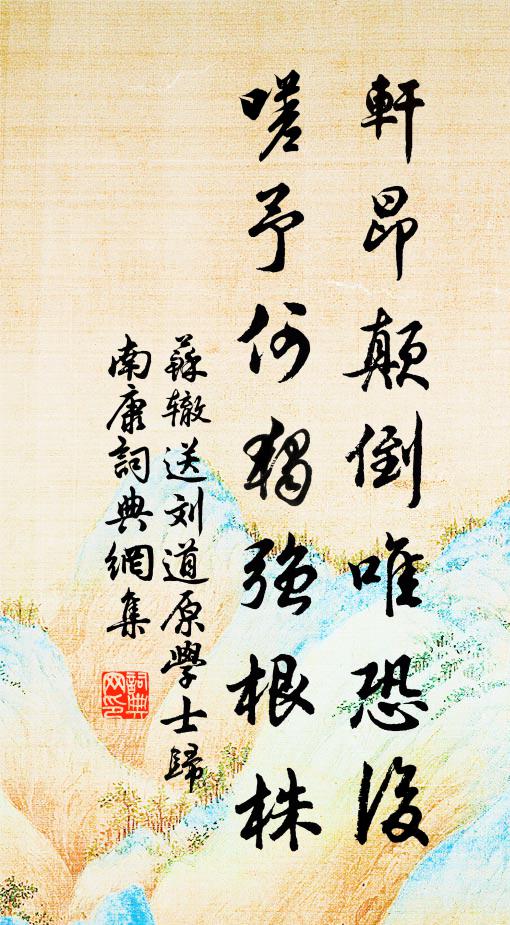 軒昂顛倒唯恐後
嗟予何獨強根株
蘇辙送刘道原學士歸
南康詞典網集
詞典
网印